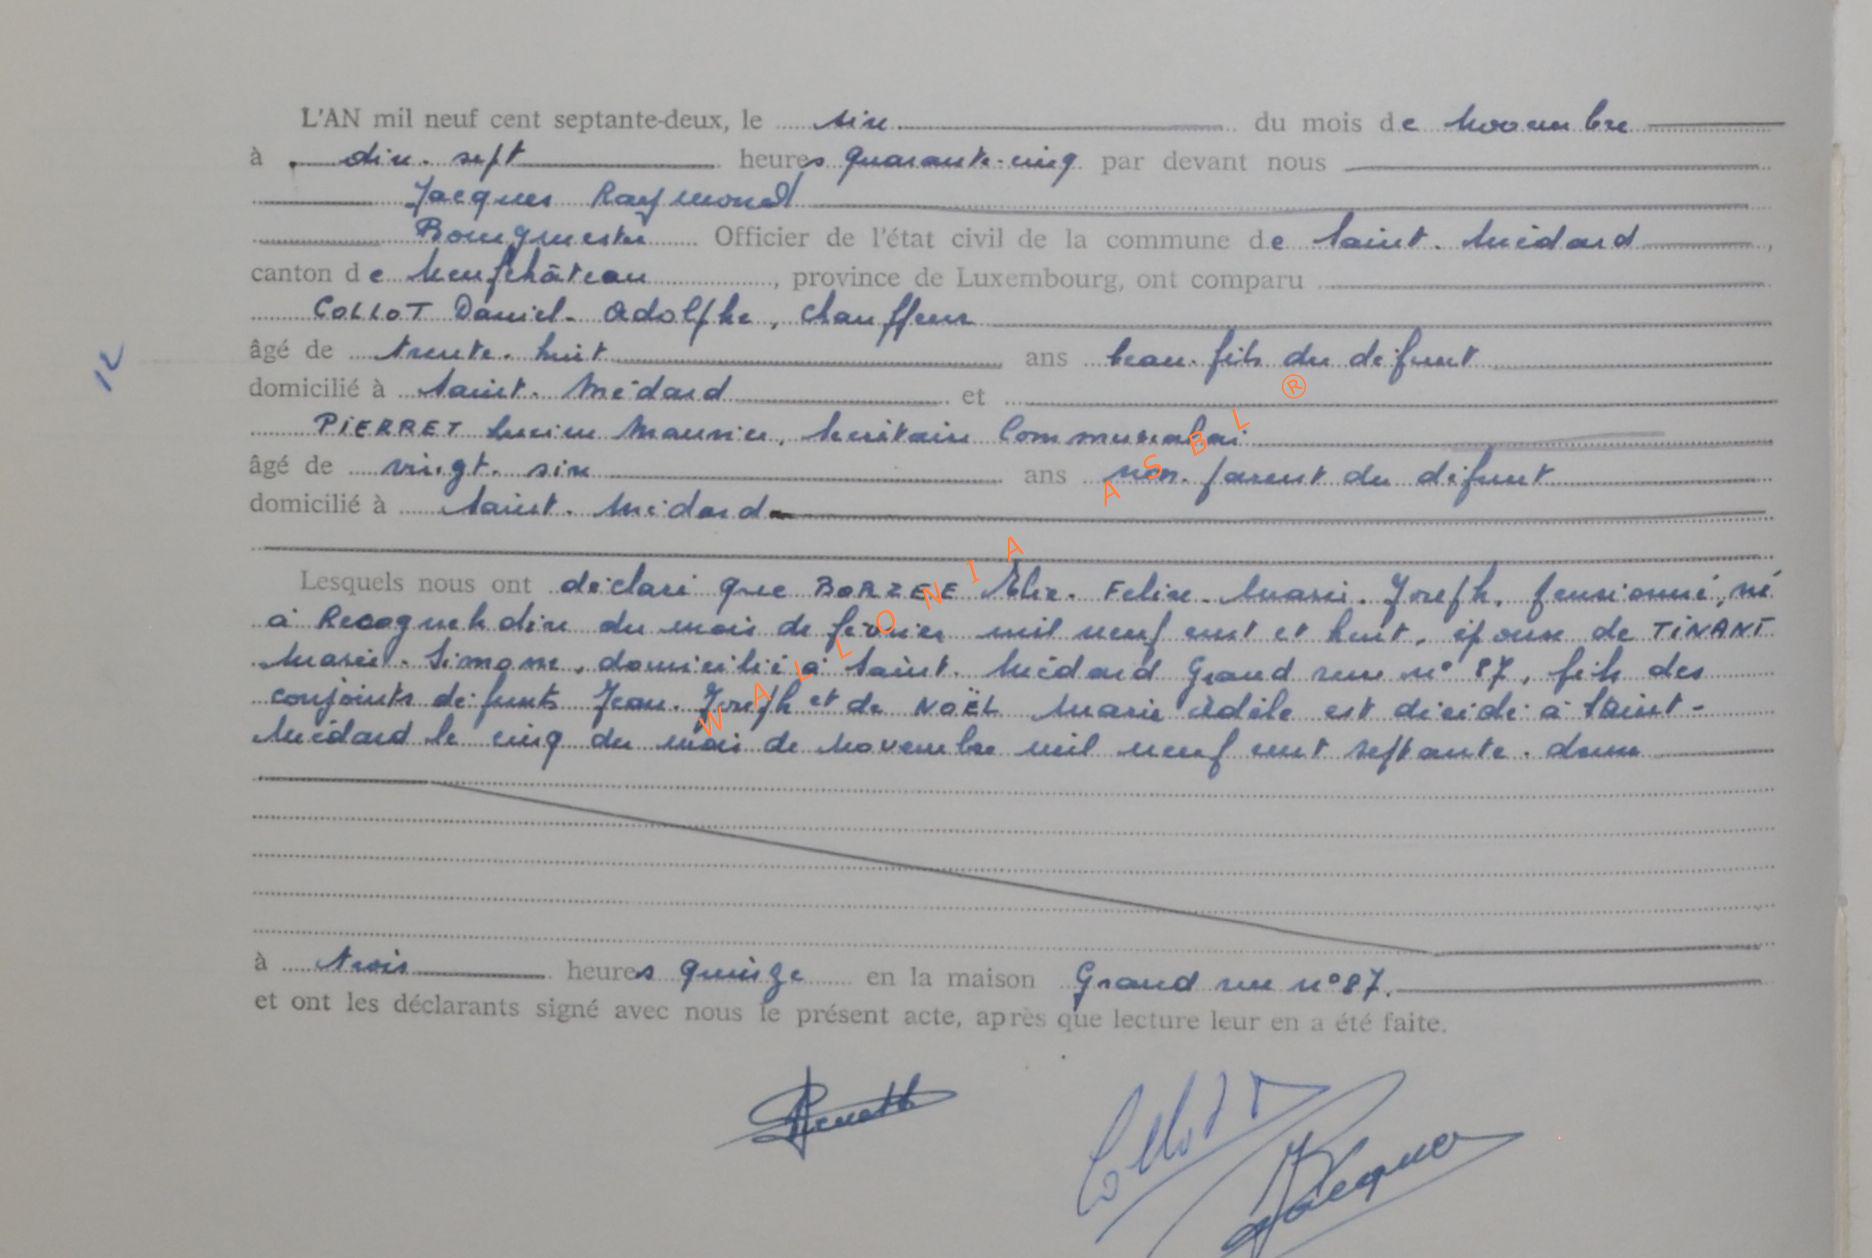 L'AN mil neuf cent septante-deux, le six du mois de Novembre
à dix-sept heures quarante-cinq par devant nous
Jacques Raymond
Bourgmestre Officier de l'état civil de la commune de Saint-Médard,
canton de Neufchâteau, province de Luxembourg, ont comparu
COLLOT Daniel-Adolphe, chauffeur
âgé de trente-huit ans beau-fils du défunt
domicilié à Saint-Médard et
PIERRET Lucien Maurice, Secrétaire Communal
âgé de vingt-six ans non-parent du défunt
domicilié à Saint-Médard
Lesquels nous ont déclaré que BORZEE Felix-Marie-Joseph, pensionné, né
à Recogne le dix du mois de février mil neuf cent et huit, époux de TINANT
Marie-Simone, domicilié à Saint-Médard Grand rue n° 87, fils des
conjoints défunts Jean-Joseph et de NOËL Marie Adèle est décédé à Saint-
Médard le cinq du mois de Novembre mil neuf cent septante-deux
à trois heures quinze en la maison Grand rue n° 87.
et ont les déclarants signé avec nous le présent acte, après que lecture leur en a été faite.
12
Collot D
Jacques
WALLONIA ASBL ®